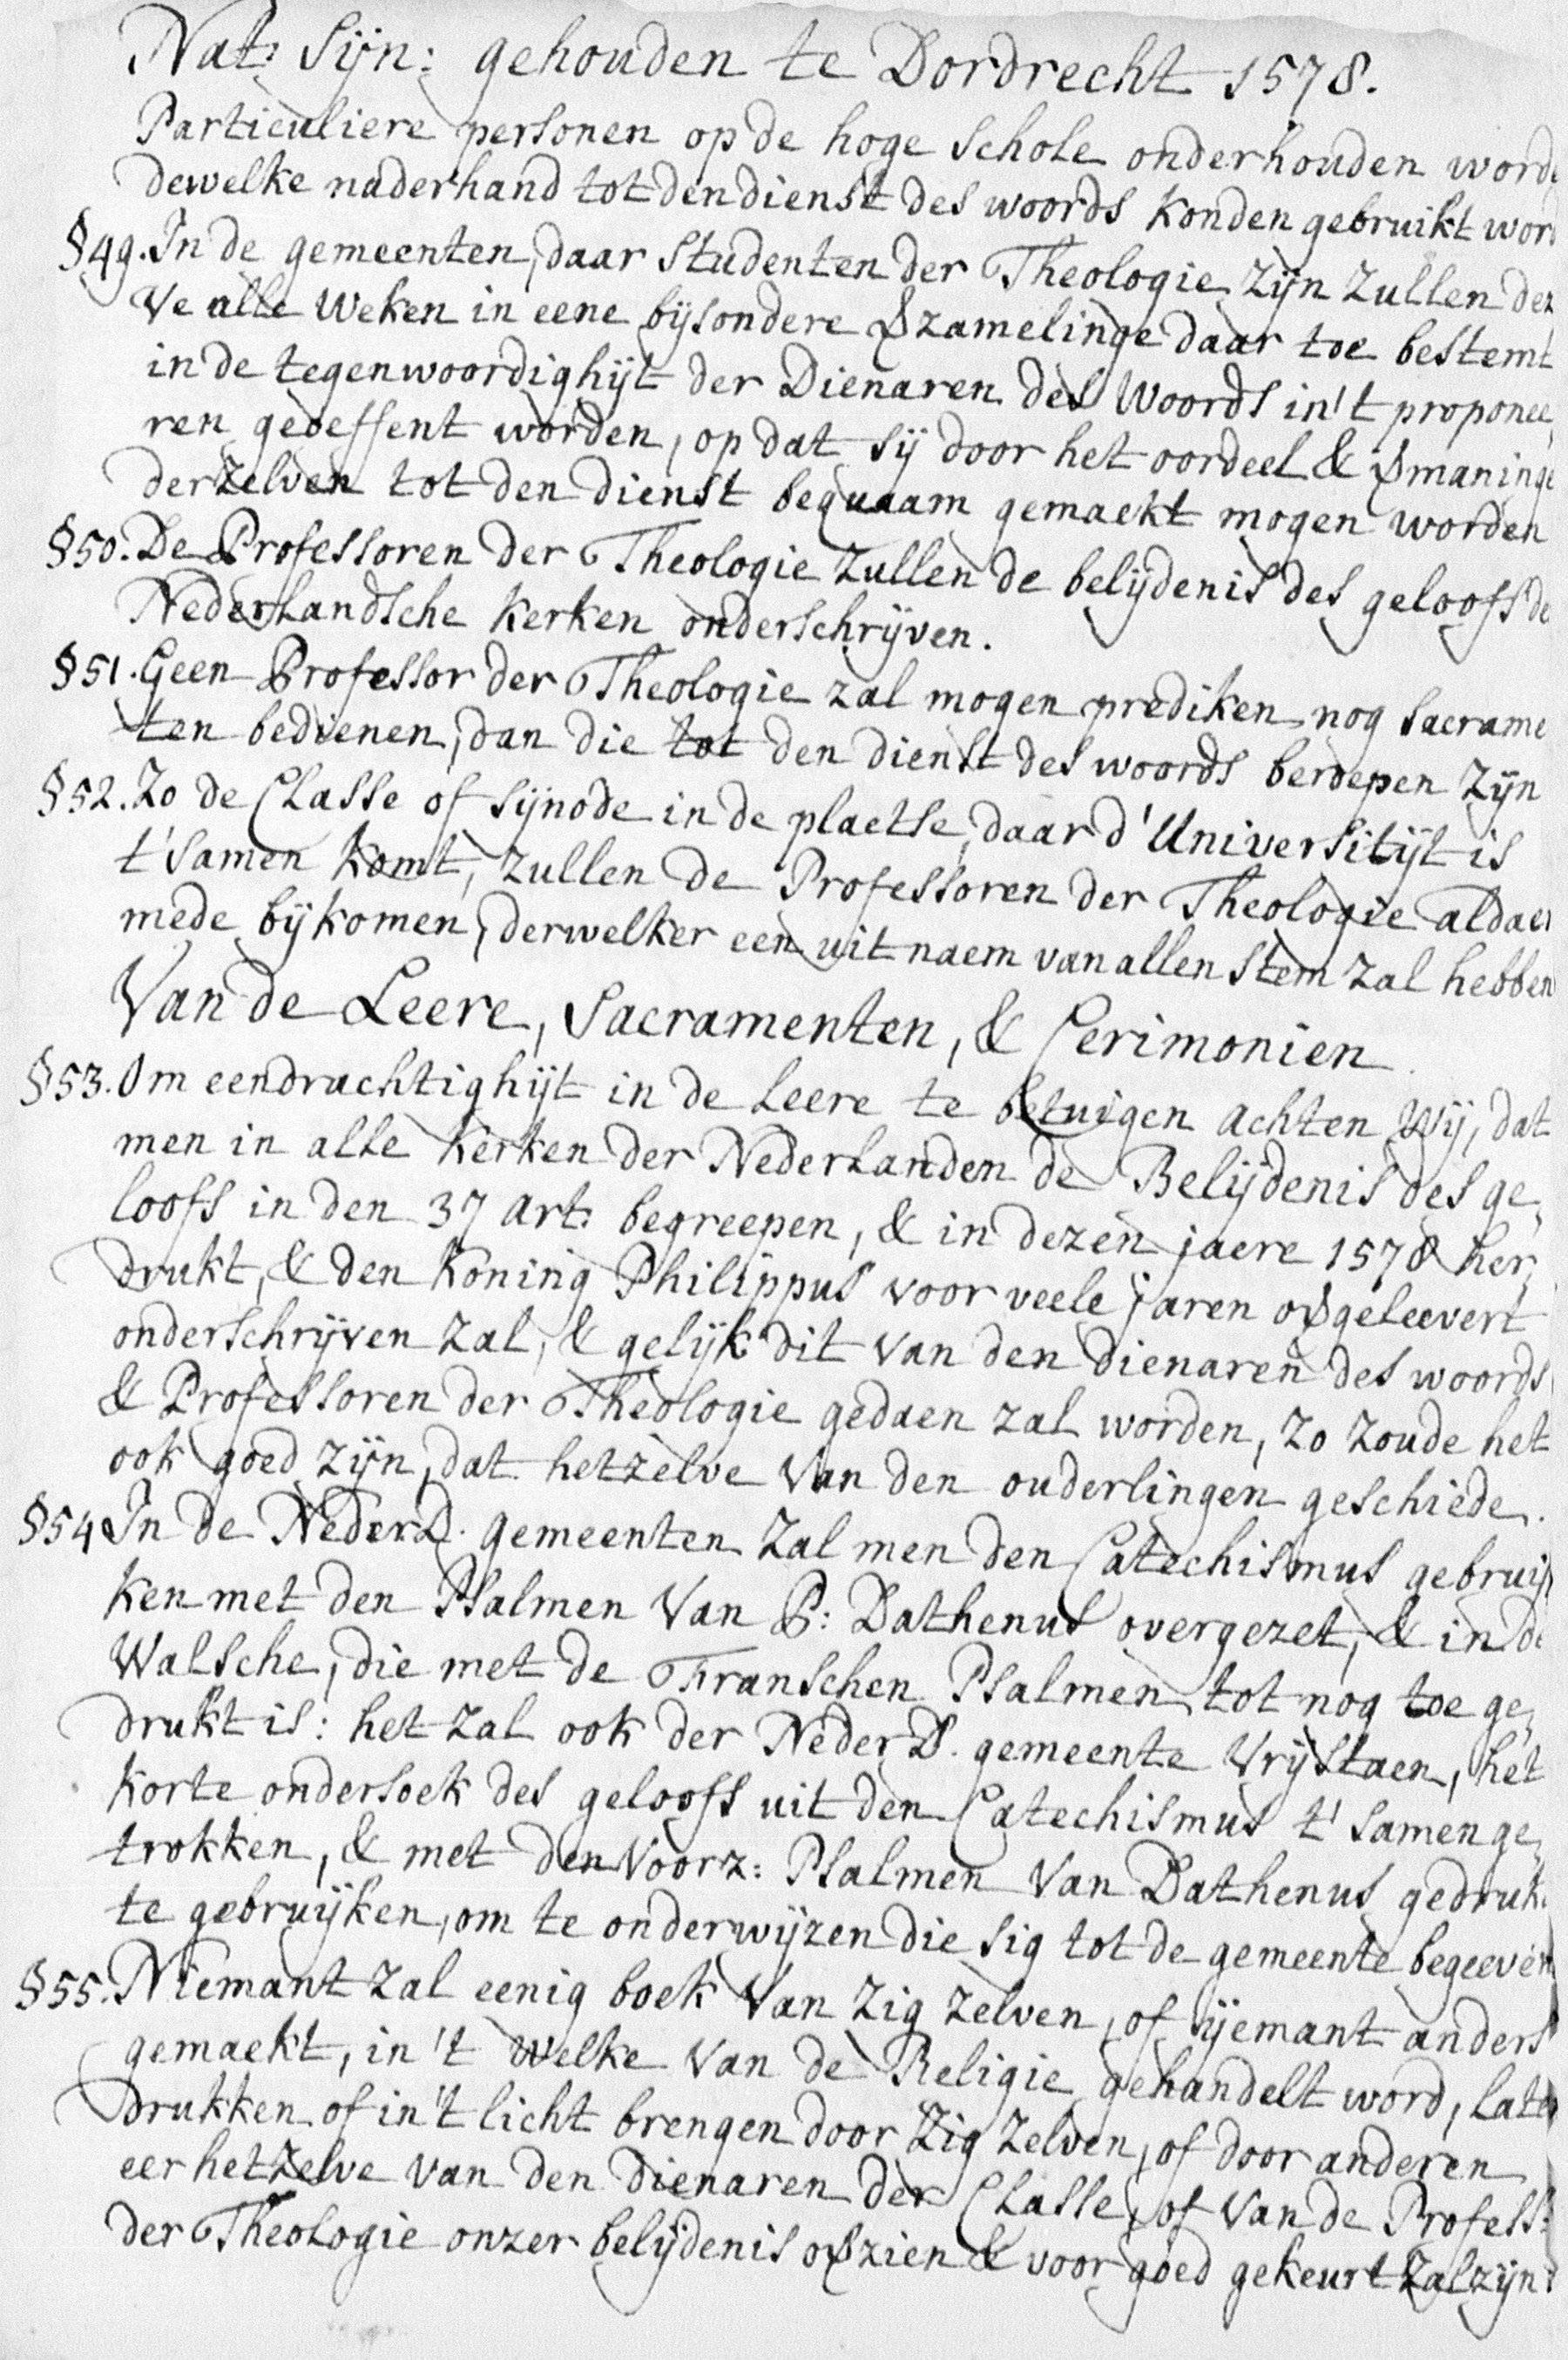 Nat: Sÿn: gehouden te Dordrecht 1578.
Particuliere personen op de hoge schole onderhouden worde
dewelke naderhand tot den dienst des woords konden gebruikt word
§49. In de gemeenten, daar studenten der Theologie zÿn zullen dez
ve alle weken in eene bÿsondere vzamelinge daar toe bestemt
in de tegenwoordighÿt der Dienaren des Woords in't proponee,
ren geoeffent worden, op dat sÿ door het oordeel & vmaninge
derzelven tot den dienst bequaam gemaekt mogen worden
§50. De Professoren der Theologie zullen de belÿdenis des geloofs de
Nederlandsche kerken onderschrÿven.
§51. Geen Professor der Theologie zal mogen prediken nog sacrame
ten bedienen, dan die tot den dienst des woords beroepen zÿn
§52. Zo de Classe of sÿnode in de plaetse, daar d'Universitÿt is
t'samen komt, zullen de Professoren der Theologie aldaer
mede bÿkomen, derwelker een uit naem van allen stem zal hebben
Van de Leere, Sacramenten, & Cerimonien
§53. Om eendrachtighÿt in de leere te betuigen achten wÿ, dat
men in alle kerken der Nederlanden de Belÿdenis des ge,
loofs in den 37 art: begreepen, & in dezen jaere 1578 her,
drukt, & den Koning Philippus voor veele jaren ovgeleevert
onderschrÿven zal, & gelÿk dit van den dienaren des woords
& Professoren der Theologie gedaen zal worden, zo zoude het
ook goed zÿn, dat hetzelve van den ouderlingen geschiede.
§54 In de NederD. gemeenten zal men den Catechismus gebruÿ
ken met den Psalmen van P: Dathenus overgezet, & in de
Walsche, die met de Franschen Psalmen tot nog toe ge,
drukt is: het zal ook der NederD. gemeente vrÿ staen, het
korte ondersoek des geloofs uit den Catechismus t'samen ge,
trokken, & met den voorz: Psalmen van Dathenus gedruk
te gebruÿken, om te onderwÿzen die sig tot de gemeente begeeven
§55. Niemant zal eenig boek van zig zelven, of ÿemant anders
gemaekt, in't welke van de Religie gehandelt word, laten
drukken of in't licht brengen door zig zelven, of door anderen
eer hetzelve van den dienaren der Classe, of van de Profess:
der Theologie onzer belÿdenis ovzien & voor goed gekeurt zal zÿn